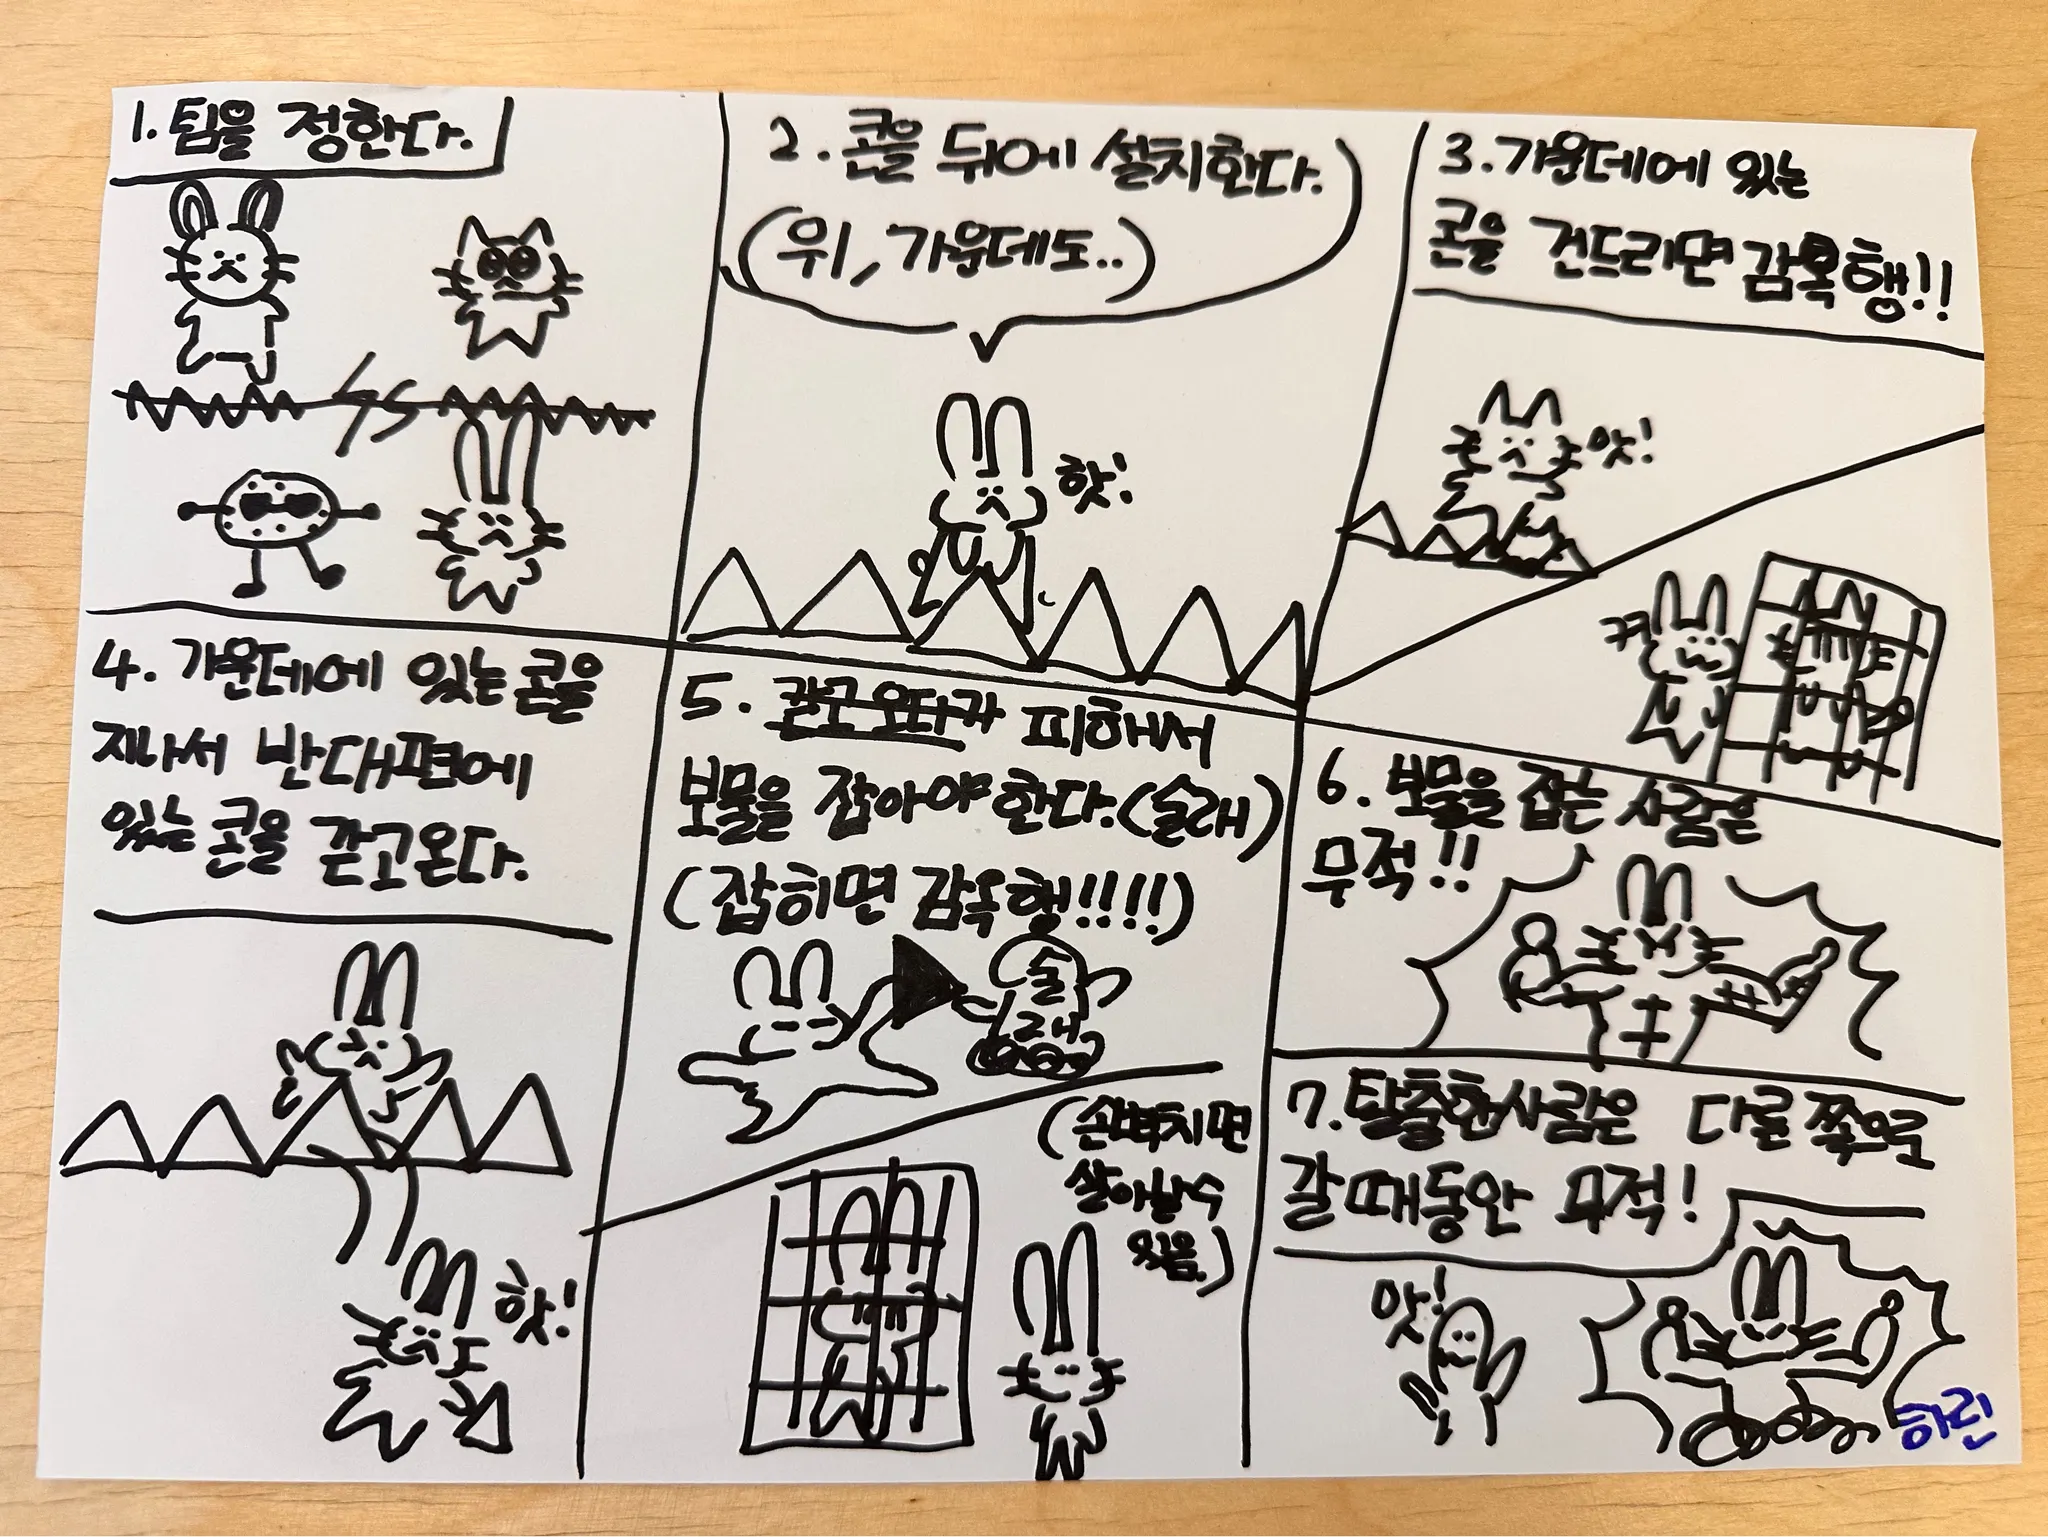 1. 팀을 정한다.
VS
2. 콘을 뒤에 설치한다.
(위, 가운데도..)
핫!
3. 가운데에 있는
콘을 건드리면 감옥행!!
앗!
4. 가운데에 있는 콘을
지나서 반대편에
있는 콘을 갇고온다.
핫!
5. 피해서
보물을 잡아야 한다. (술래)
(잡히면 감옥행!!!!)
술
래
(손뼉치면
살아날 수
있음.)
6. 보물을 잡는 사람은
무적!!
7. 탈출한 사람은 다른 쪽으로
갈때동안 무적!
앗!
하린